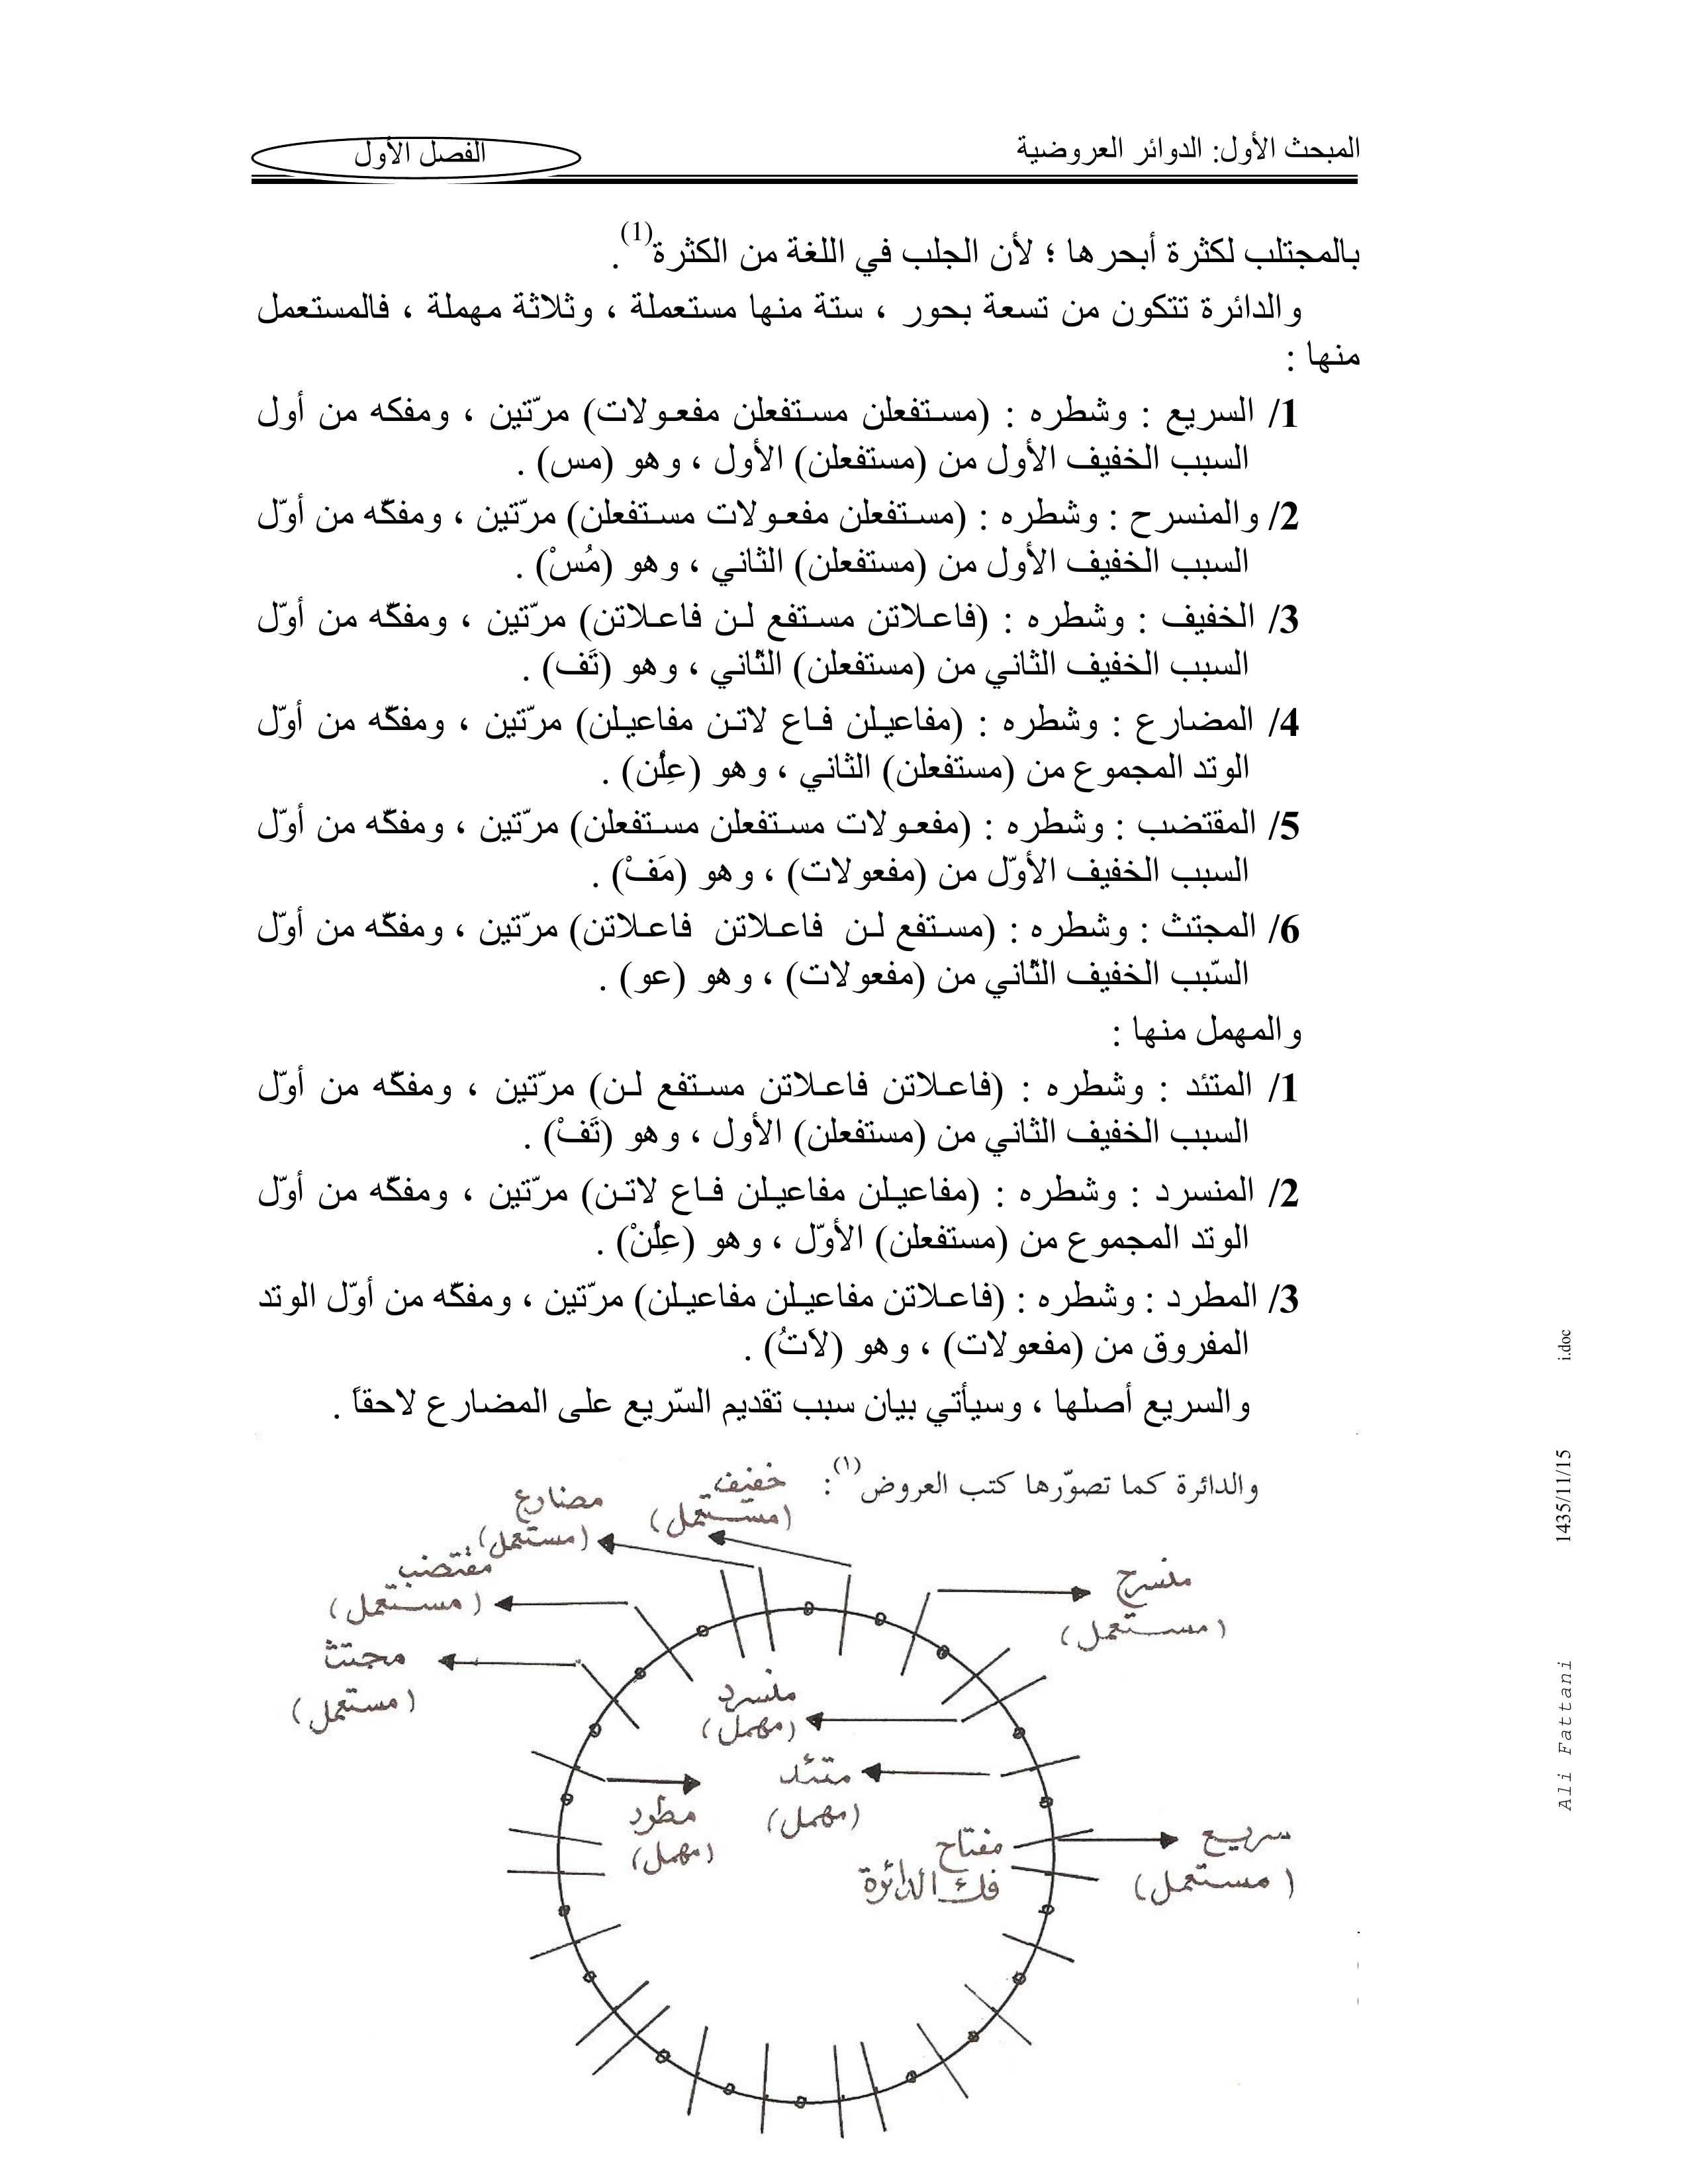 المبحث الأول: الدوائر العروضية
الفصل الأول
بالمجتلب لكثرة أبحرها ؛ لأن الجلب في اللغة من الكثرة(1) .
والدائرة تتكون من تسعة بحور ، ستة منها مستعملة ، وثلاثة مهملة ، فالمستعمل
منها :
1/ السريع : وشطره : (مستفعلن مستفعلن مفعولات) مرّتين ، ومفكه من أول
السبب الخفيف الأول من (مستفعلن) الأول ، وهو (مس) .
2/ والمنسرح : وشطره : (مستفعلن مفعولات مستفعلن) مرّتين ، ومفكّه من أوّل
السبب الخفيف الأول من (مستفعلن) الثاني ، وهو (مُسْ) .
3/ الخفيف : وشطره : (فاعلاتن مستفع لن فاعلاتن) مرّتين ، ومفكّه من أوّل
السبب الخفيف الثاني من (مستفعلن) الثّاني ، وهو (تَف) .
4/ المضارع : وشطره : (مفاعيلن فاع لاتن مفاعيلن) مرّتين ، ومفكّه من أوّل
الوتد المجموع من (مستفعلن) الثاني ، وهو (عِلُن) .
5/ المقتضب : وشطره : (مفعولات مستفعلن مستفعلن) مرّتين ، ومفكّه من أوّل
السبب الخفيف الأوّل من (مفعولات) ، وهو (مَفْ) .
6/ المجتث : وشطره : (مستفع لن فاعلاتن فاعلاتن) مرّتين ، ومفكّه من أوّل
السّبب الخفيف الثّاني من (مفعولات) ، وهو (عو) .
والمهمل منها :
1/ المتئد : وشطره : (فاعلاتن فاعلاتن مستفع لن) مرّتين ، ومفكّه من أوّل
السبب الخفيف الثاني من (مستفعلن) الأول ، وهو (تَفْ) .
2/ المنسرد : وشطره : (مفاعيلن مفاعيلن فاع لاتن) مرّتين ، ومفكّه من أوّل
الوتد المجموع من (مستفعلن) الأوّل ، وهو (عِلُنْ) .
3/ المطرد : وشطره : (فاعلاتن مفاعيلن مفاعيلن) مرّتين ، ومفكّه من أوّل الوتد
المفروق من (مفعولات) ، وهو (لاَتُ) .
والسريع أصلها ، وسيأتي بيان سبب تقديم السّريع على المضارع لاحقاً .
والدائرة كما تصوّرها كتب العروض(١) :
خفيف
(مستعمل)
مضارع
(مستعمل)
مقتضب
(مستعمل)
منسرح
(مستعمل)
مجتث
(مستعمل)
منسرد
(مهمل)
متئد
(مهمل)
مطرد
(مهمل)
مفتاح
فك الدائرة
سريع
(مستعمل)
i.doc
1435/11/15
Ali Fattani